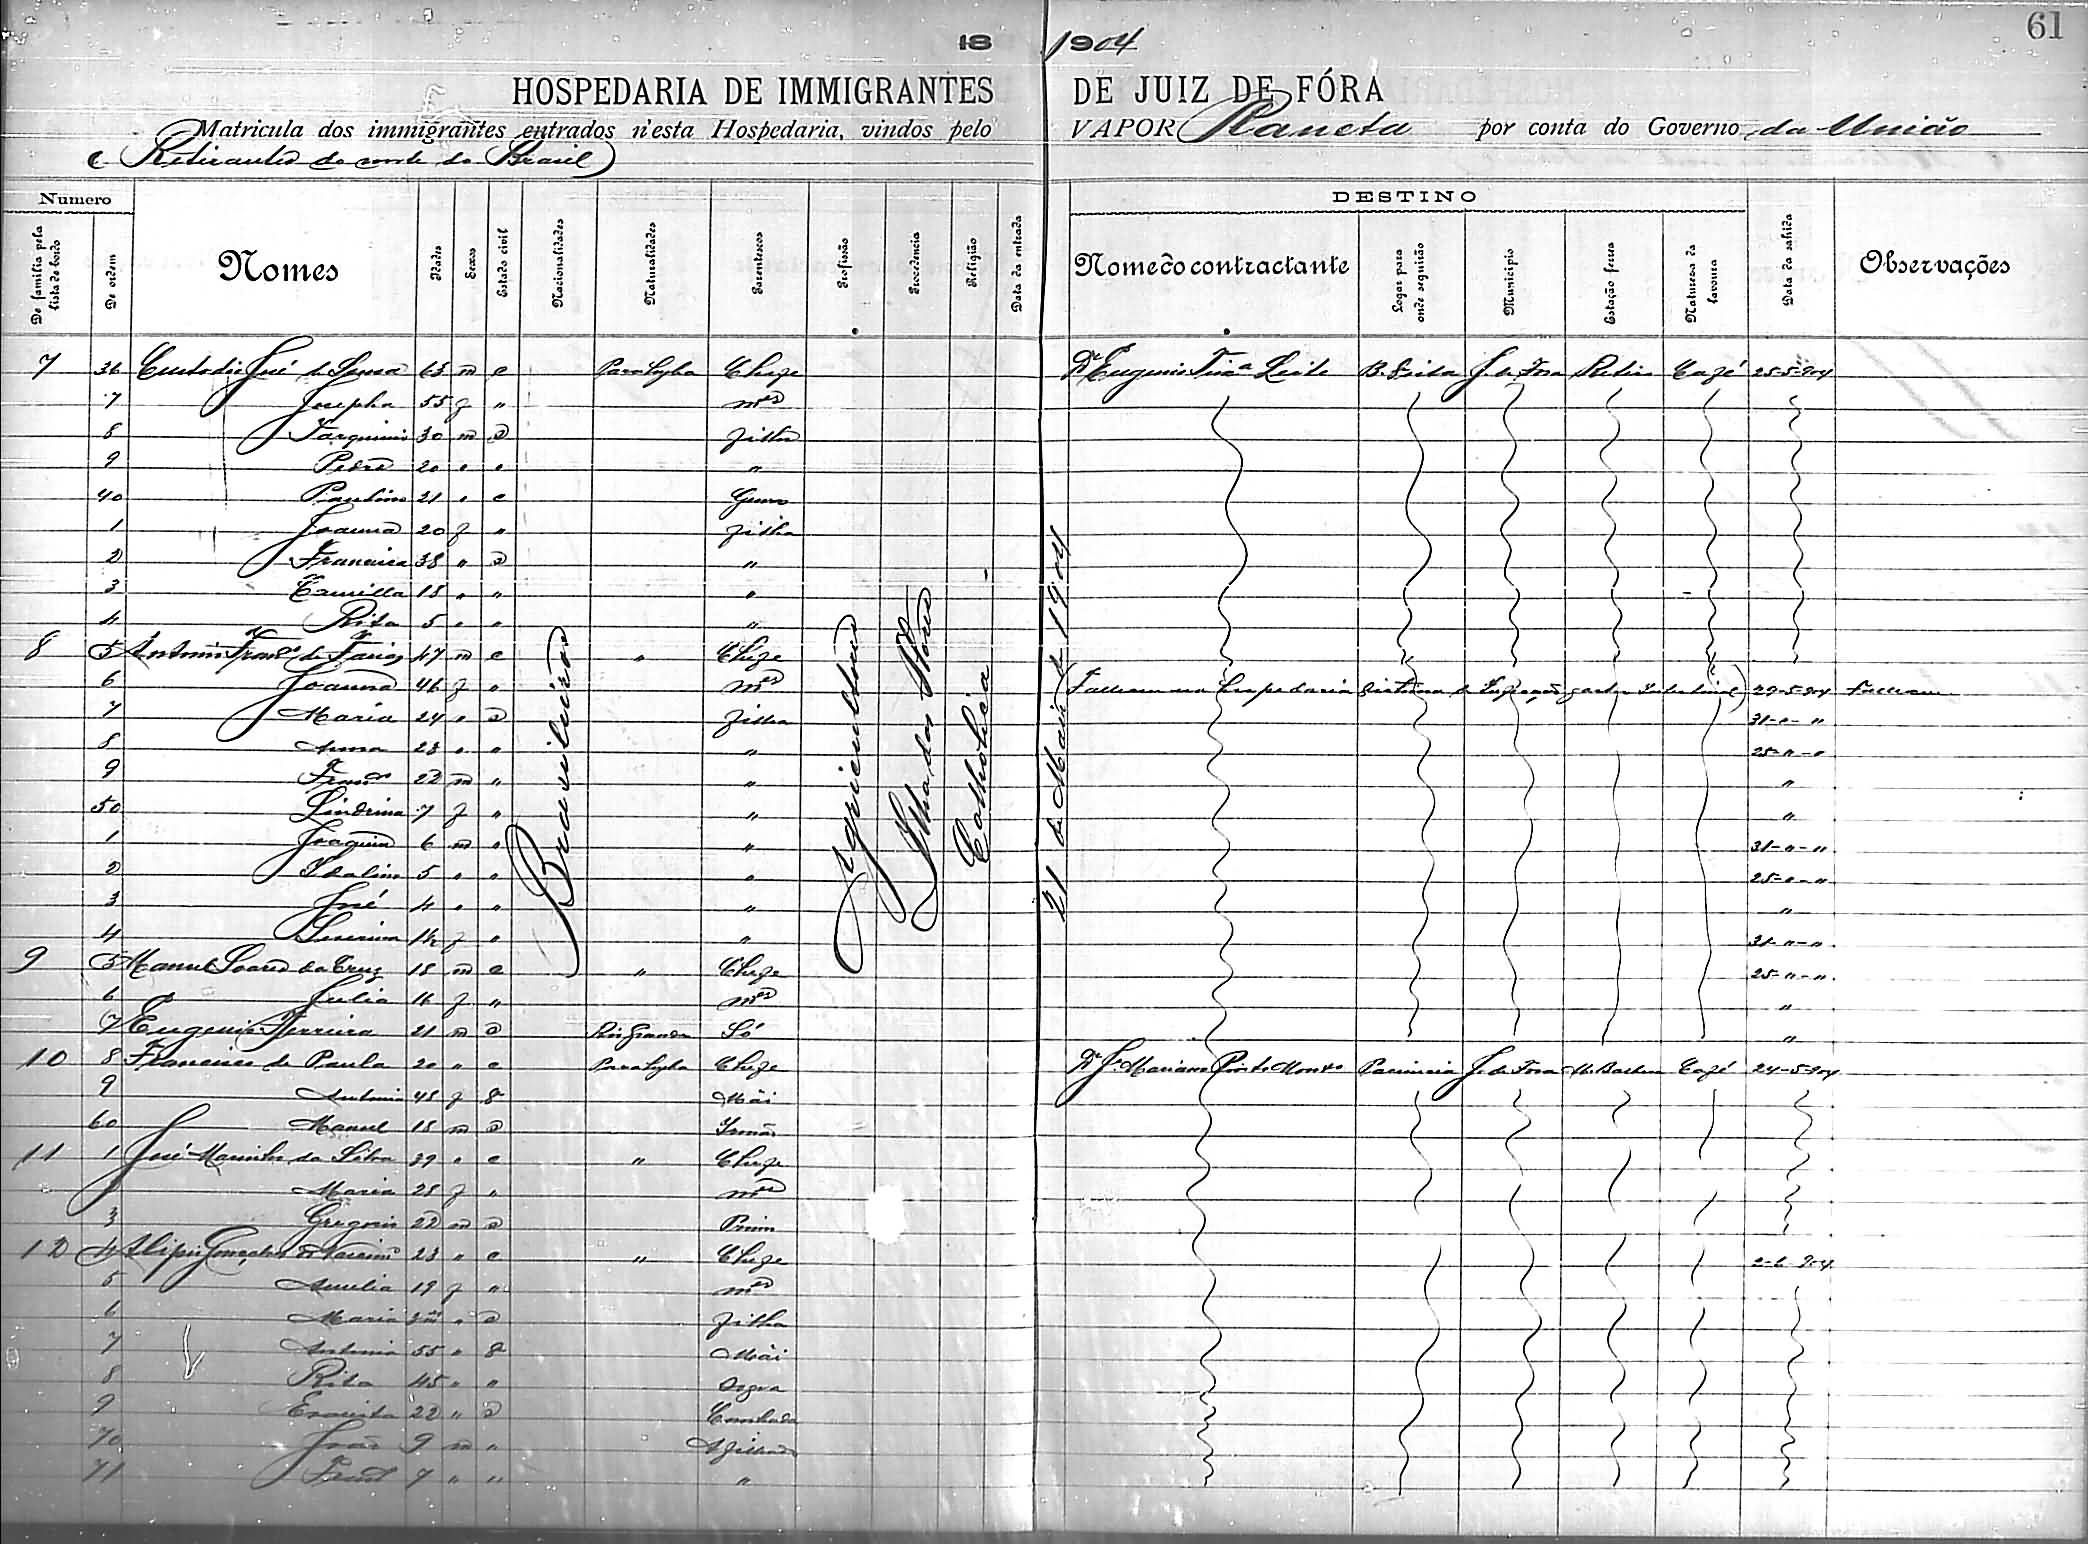 61
18 1904
HOSPEDARIA DE IMMIGRANTES DE JUIZ DE FÓRA
Matricula dos immigrantes entrados n'esta Hospedaria, vindos pelo VAPOR Planeta por conta do Governo da União
(Retirantes do norte do Brasil)
Numero DESTINO
De familia pela lista de bordo De ordem Nomes Idades Sexos Estado civil Nacionalidades Naturalidades Parentescos Profissão Procedencia Religião Data da entrada Nome do contractante Logar para onde seguirão Municipio Estação ferrea Natureza da lavoura Data da sahida Observações
7 36 Custodio José de Sousa 63 m c Parahyba Chefe Dr Eugenio Leite J. de Fora Café 25-5-904
7 Josepha 55 f " mer
8 Tarquinio 30 m s filho
9 Pedro 20 " " "
40 Paulino 21 " c Genro
1 Joanna 20 f " filha
2 Francisca 38 " s "
3 Camilla 18 " " "
4 Rita 5 " " "
8 5 Antonio Franco de Farias 47 m c " Chefe
6 Joanna 46 f " mer (Falleceu na hospedaria 29-5-904 Falleceu
7 Maria 24 " s filha 31-"-"
8 Anna 23 " " " 25-"-"
9 Franco 22 m " " "
50 Lindrina 7 f " " "
1 Joaquim 6 m " " 31-"-"
2 Idalino 5 " " " 25-"-"
3 José 4 " " " "
4 Severina 14 f " " 31-"-"
9 5 Manuel Soares da Cruz 18 m c " Chefe 25-"-"
6 Julia 16 f " mer "
7 Eugenio Ferreira 21 m s Rio Grande Só "
10 8 Francisco de Paula 20 " c Parahyba Chefe Dr J. Mariano Pinto Monteiro J. de Fora M. Barbosa Café 24-5-904
9 Antonia 48 f Mãi
60 Manuel 18 m s Irmão
11 1 José Marinho da Silva 39 " c " Chefe
Maria 28 f " mer
3 Gregorio 22 m s Primo
12 4 Alipio Gonçalves 23 " c " Chefe 2-6-904
5 Amelia 19 f " mer
6 Maria " s filha
7 Antonia 55 " Mãi
8 Rita 45 " " sogra
9 22 " s Cunhada
70 João 9 m "
71 7 " " "
Brasileiros
Agricultores
Ilha das Flores
Catholica
21 de Maio de 1904